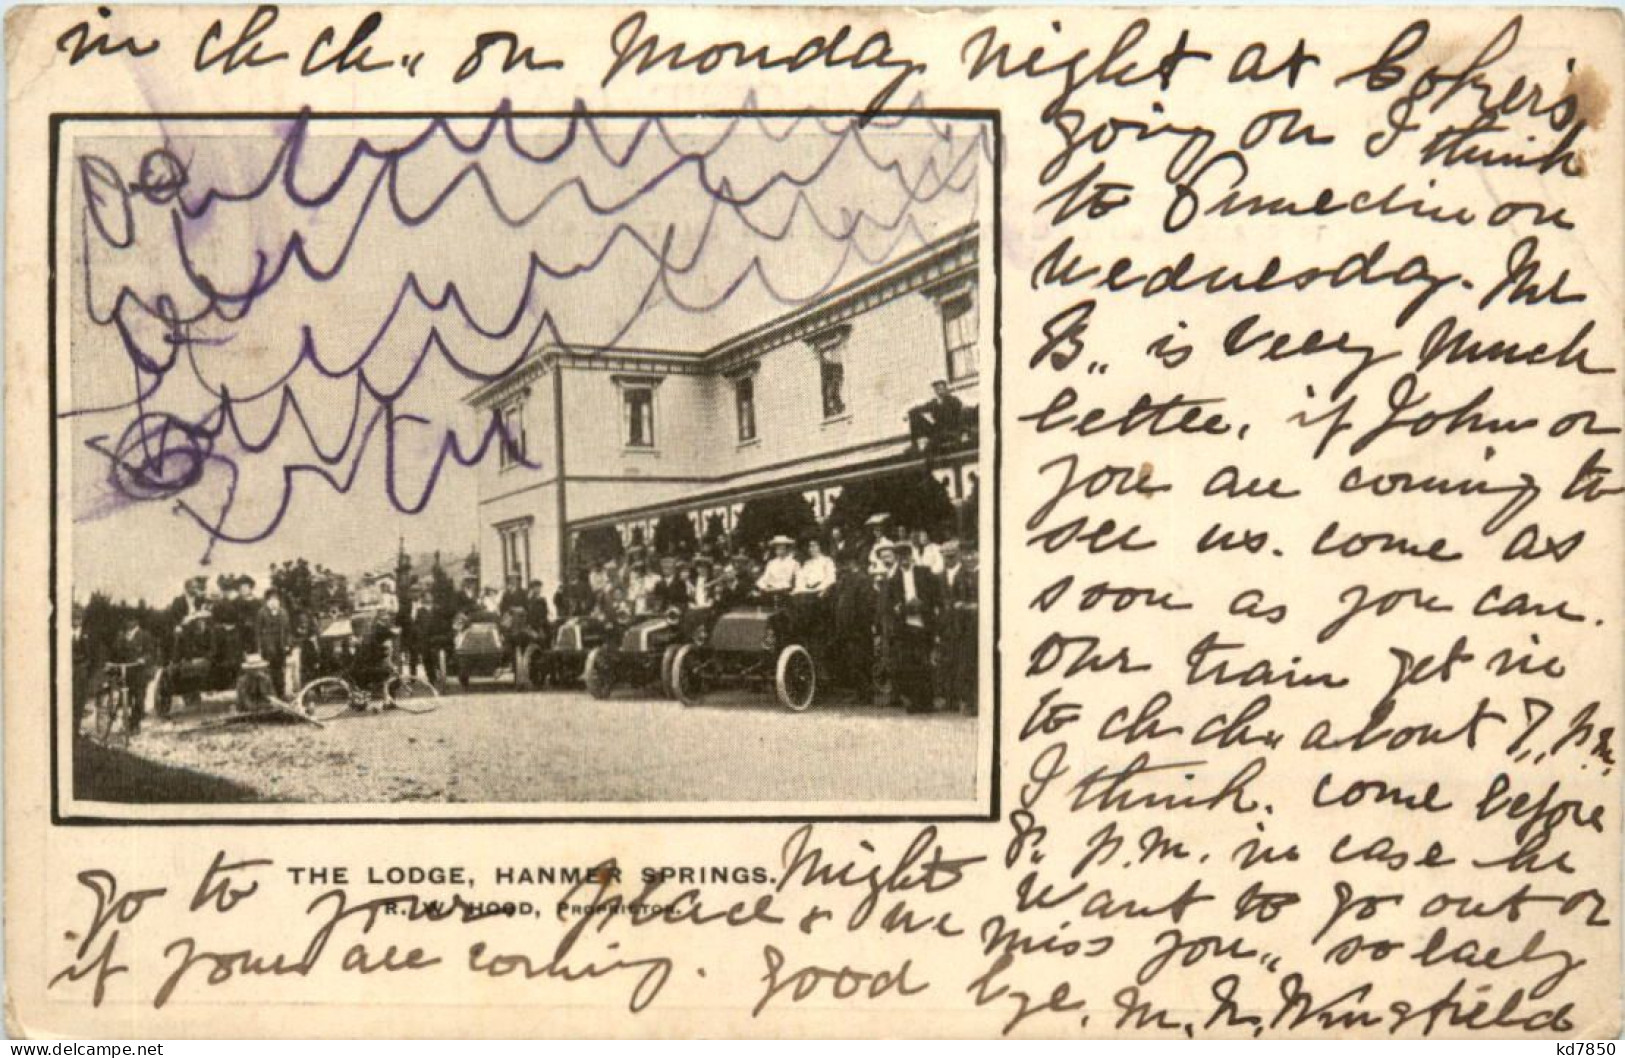 in ch ch„ on Monday night at Cokers,
going on I think
to Dunedin on
Wednesday. Mr
B„ is very much
better, if John or
you are coming to
see us. come as
soon as you can.
Our train get in
to ch ch„ about 7„ p.m.,
I think. come before
8„ p.m. in case he
want to go out or
go to your place & we might
miss you„ so early
if your are coming. good bye.
M. N. Wingfield
THE LODGE, HANMER SPRINGS.
R. W. HOOD, PROPRIETOR.
kd7850